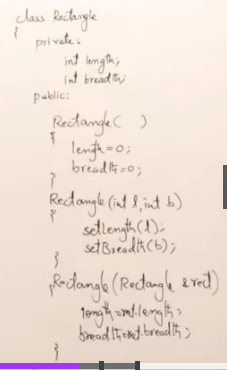 class Rectangle
{
private:
int length;
int breadth;
public:
Rectangle( )
{
length=0;
breadth=0;
}
Rectangle(int l, int b)
{
setLength(l);
setBreadth(b);
}
Rectangle(Rectangle &rect)
{
length=rect.length;
breadth=rect.breadth;
}